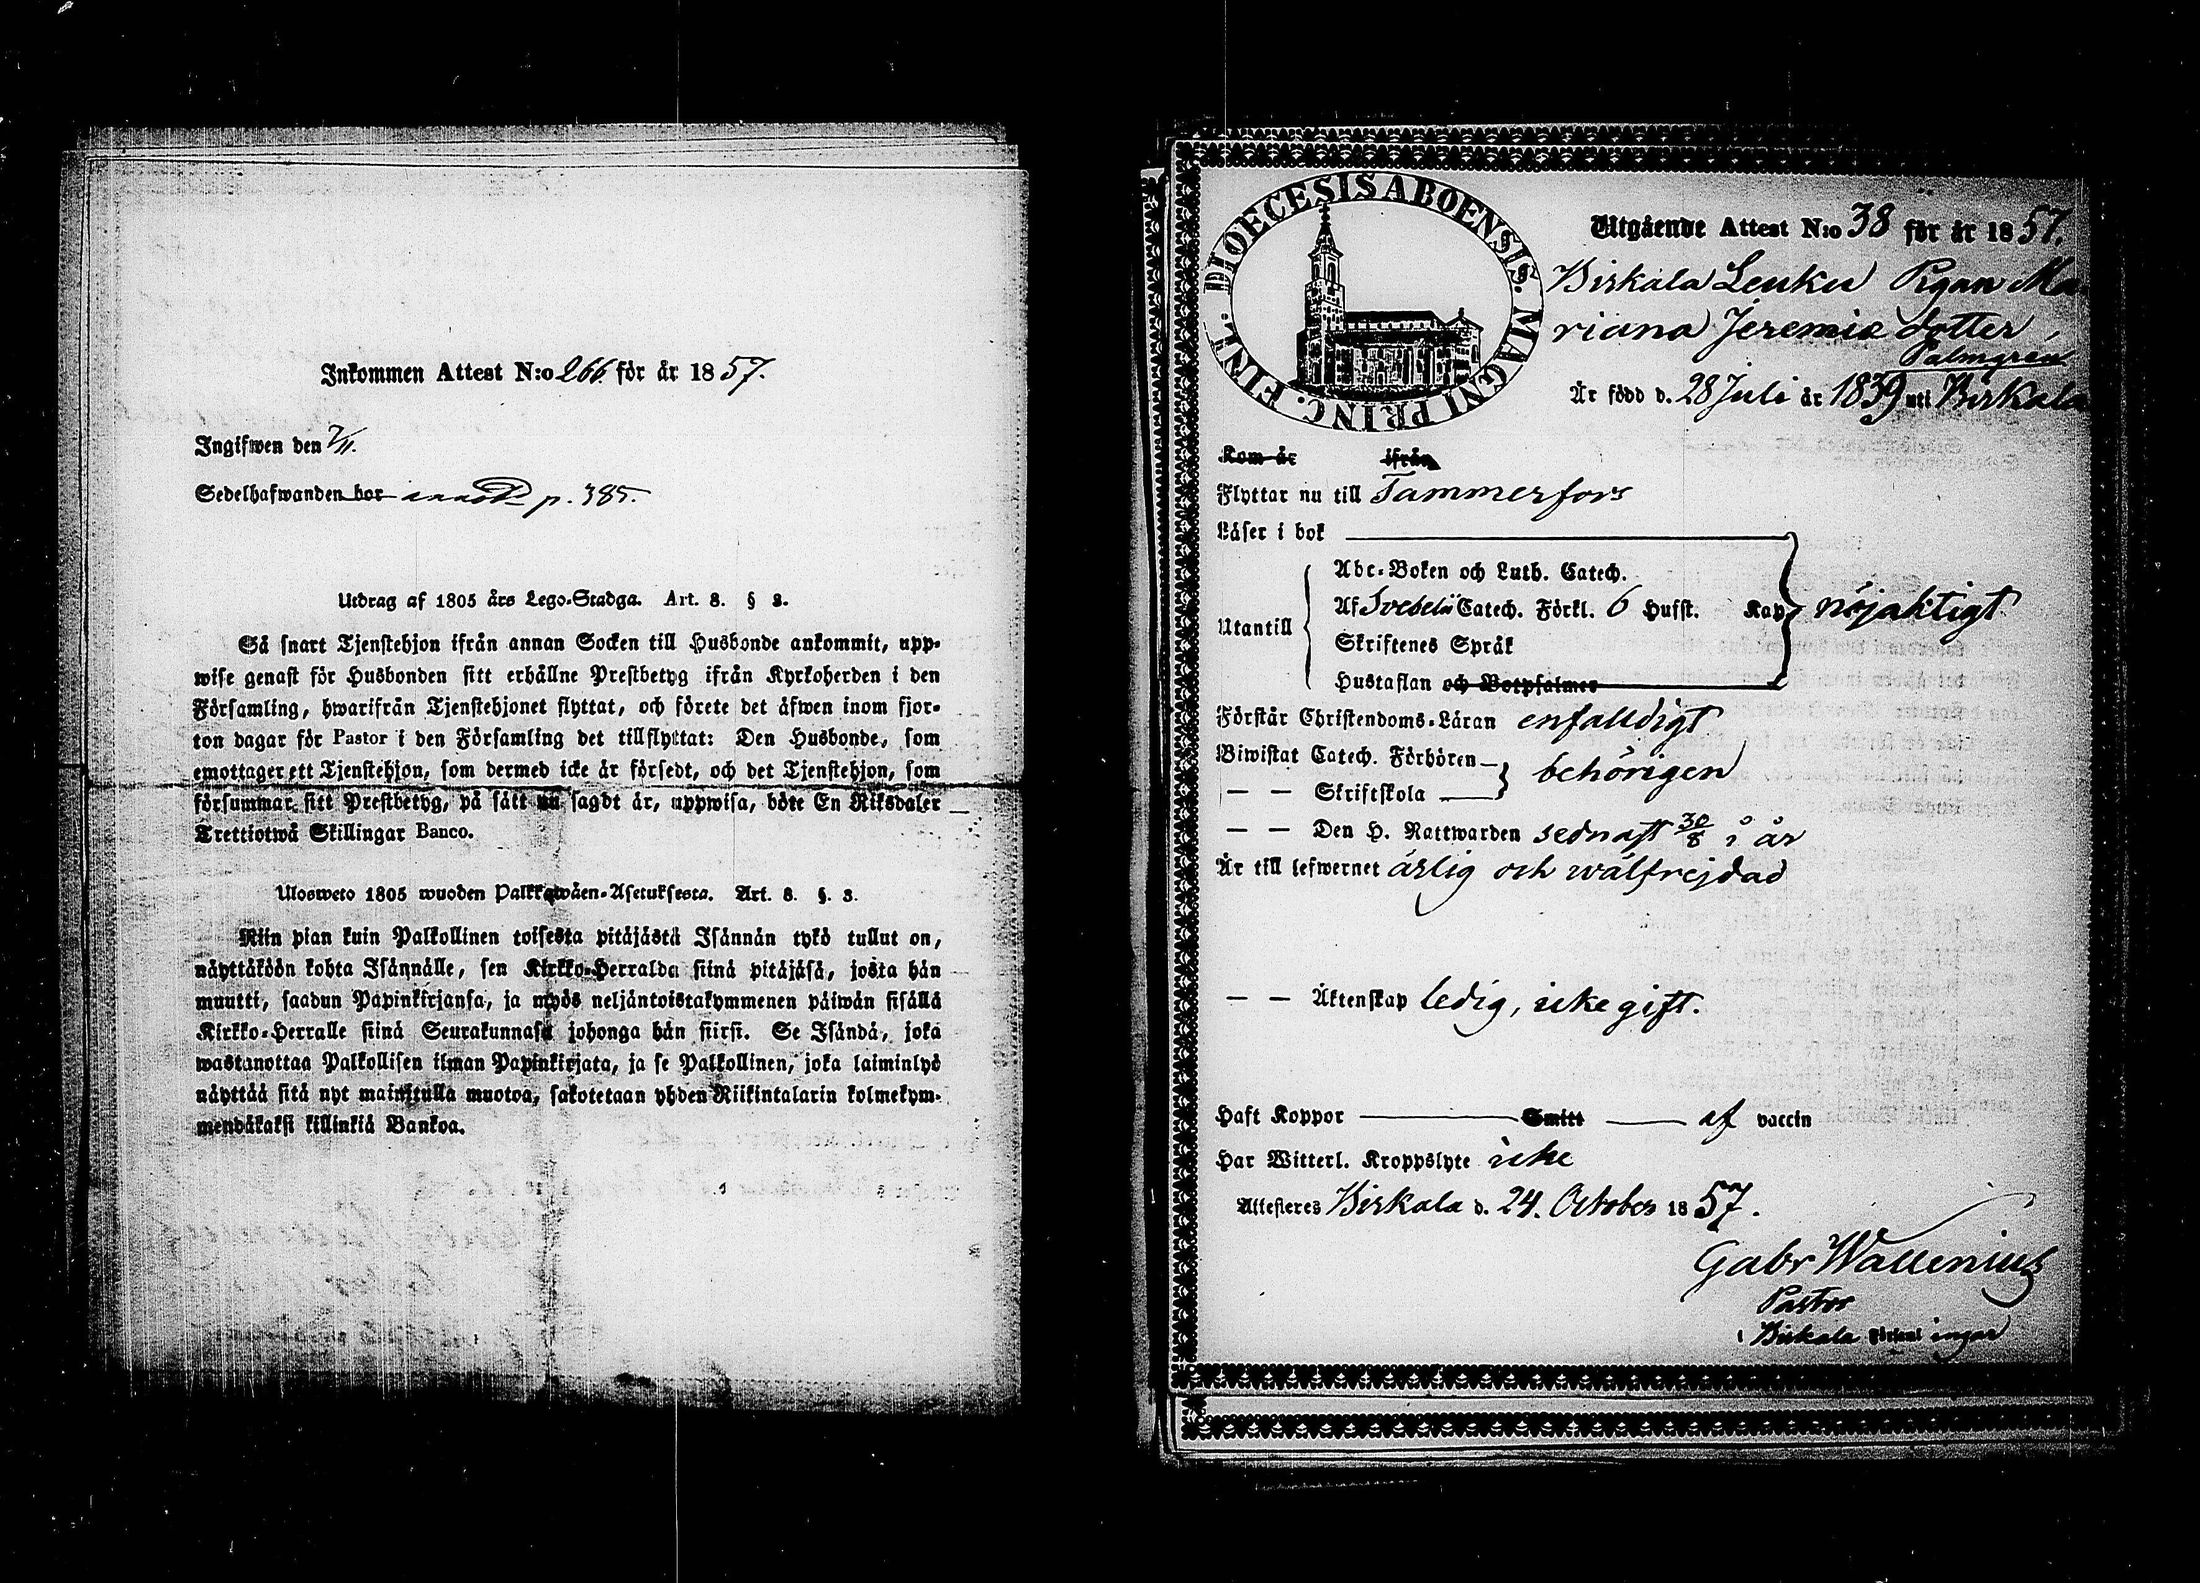 Inkommen Attest N:o 266 för år 1857.
Ingifwen den 7/11.
Sedelhafwanden bor p. 385.
Utdrag af 1805 års Lego-Stadga. Art. 8. § 3.
Så snart Tjenstehjon ifrån annan Socken till Husbonde ankommit, upp-
wise genast för Husbonden sitt erhållne Prestbetyg ifrån Kyrkoherden i den
Församling, hwarifrån Tjenstehjonet flyttat, och förete det äfwen inom fjor-
ton dagar för Pastor i den Församling det tillflyttat: Den Husbonde, som
emottager ett Tjenstehjon, som dermed icke är försedt, och det Tjenstehjon, som
försummar sitt Prestbetyg, på sätt nu sagdt är, uppwisa, böte En Riksdaler
Trettiotwå Skillingar Banco.
Ulosweto 1805 wuoden Palkkawäen-Asetuksesta. Art. 8. §. 3.
Niin pian kuin Palkollinen toisesta pitäjästä Isännän tykö tullut on,
näyttäköön kohta Isännälle, sen Kirkko-Herralda siinä pitäjäsä, josta hän
muutti, saadun Papinkirjansa, ja myös neljäntoistakymmenen päiwän sisällä
Kirkko-Herralle siinä Seurakunnasa johonga hän siirsi. Se Isändä, joka
wastanottaa Palkollisen ilman Papinkirjata, ja se Palkollinen, joka laiminlyö
näyttää sitä nyt mainitulla muotoa, sakotetaan yhden Riikintalarin kolmekym-
mendäkaksi killinkiä Bankoa.
DIOECESIS ABOENSIS. MAGNI PRINC. FINL.
Utgående Attest N:o 38 för år 1857.
Birkala Leuku Pigan Ma
riana Jeremie dotter
Palmgren
Är född d. 28 Juli år 1839 uti Birkala
Kom år ifrån
Flyttar nu till Tammerfors
Läser i bok
Utantill
Abc-Boken och Luth. Catech.
Af Svebelii Catech. Förkl. 6 Hufst. Kap
Skriftenes Språk
Hustaflan och Botpsalmer
nöjaktigt
Förstår Christendoms-Läran enfaldigt
Biwistat Catech. Förhören
— — Skriftskola
behörigen
— — Den H. Nattwarden sednast 30/8 i år
Är till lefwernet ärlig och wälfrejdad
— — Äktenskap ledig, icke gift.
Haft Koppor Smitt af vaccin
Har Witterl. Kroppslyte icke
Attesteres Birkala d. 24. October 1857.
Gabr Wallenius
Pastor
i Birkala Församlingar